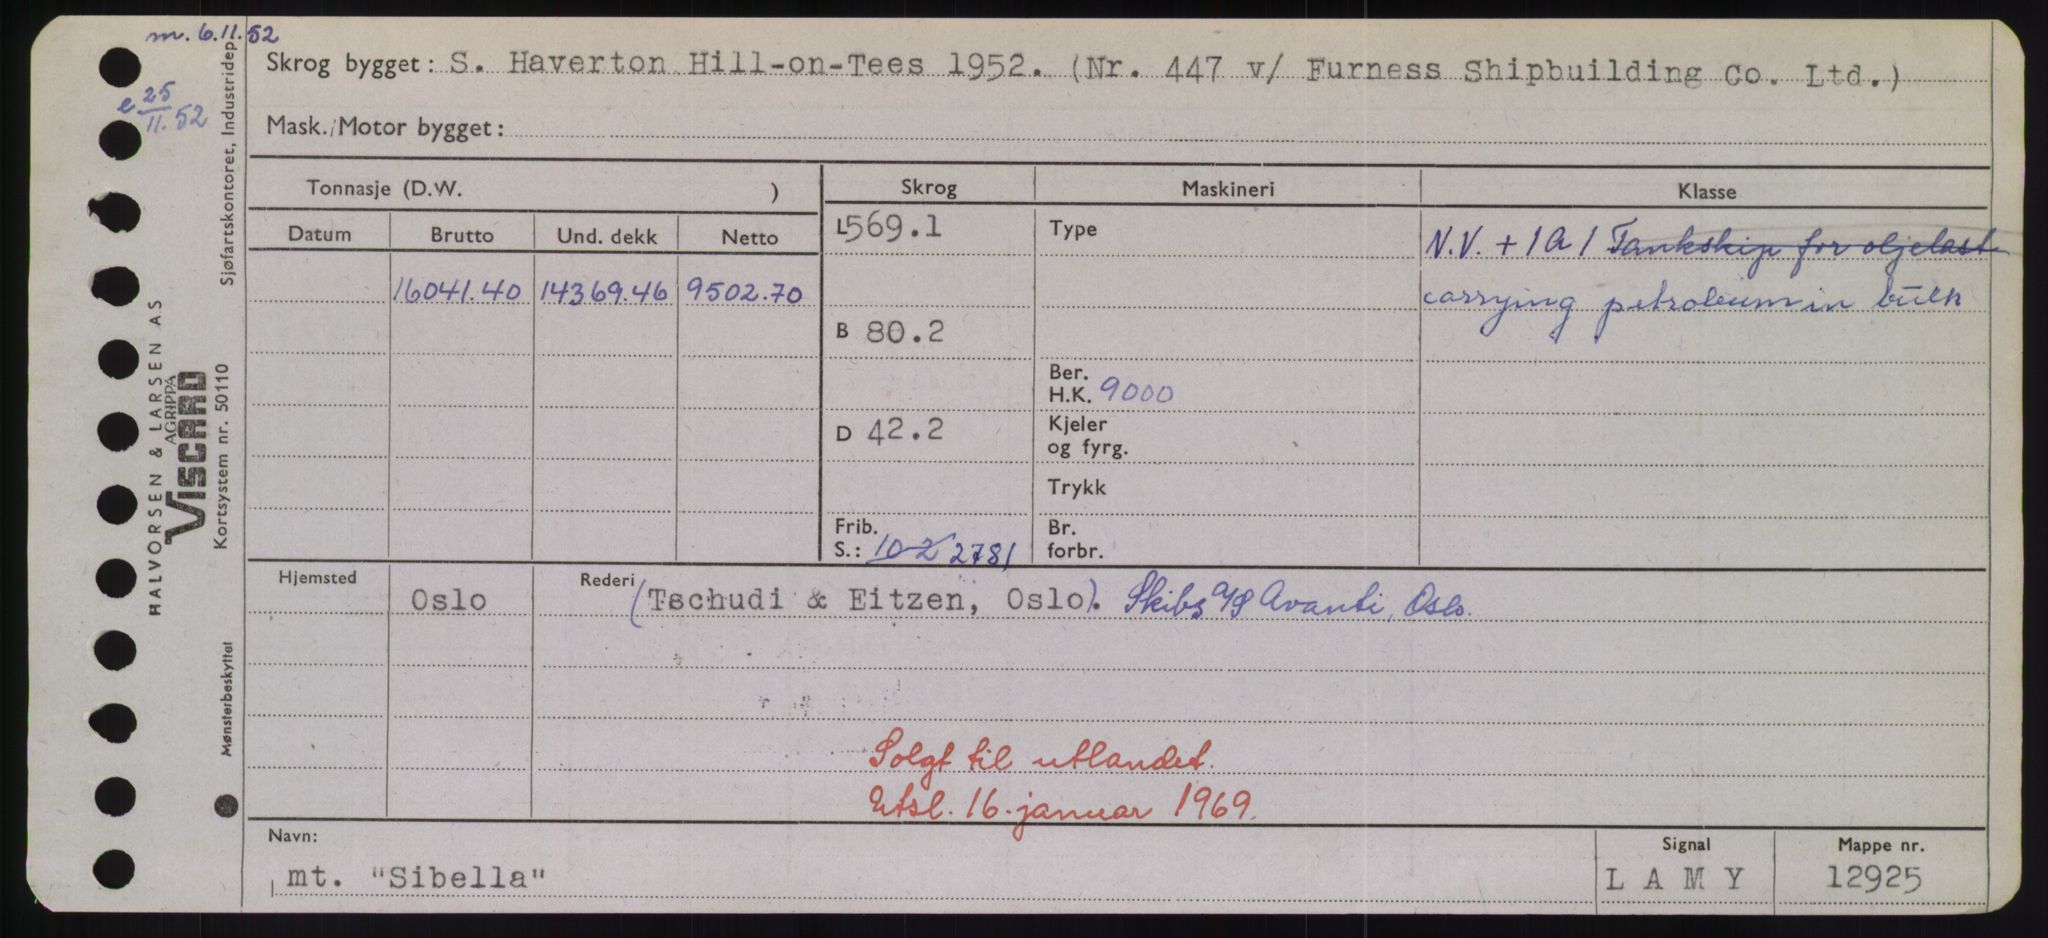 m. 6.11.52
e 25/11.52
Skrog bygget: S. Haverton Hill-on-Tees 1952. (Nr. 447 v/ Furness Shipbuilding Co. Ltd.)
Mask./Motor bygget:
Tonnasje (D.W. )
Skrog
Maskineri
Klasse
Datum
Brutto
Und. dekk
Netto
L 569.1
Type
N.V. + 1A1 Tankskip for oljelast
16041.40 14369.46 9502.70
carrying petroleum in bulk
B 80.2
Ber.
H.K. 9000
D 42.2
Kjeler
og fyrg.
Trykk
Frib.
S.: 10-2 2781
Br.
forbr.
Hjemsted
Oslo
Rederi
(Tschudi & Eitzen, Oslo). Skibs A/S Avanti, Oslo.
Solgt til utlandet.
Utsl. 16. januar 1969.
Navn:
mt. "Sibella"
Signal
L A M Y
Mappe nr.
12925
Sjøfartskontoret, Industridep.
Kortsystem nr. 50110
Mønsterbeskyttet
HALVORSEN & LARSEN AS
AGRIPPA
VISCARD